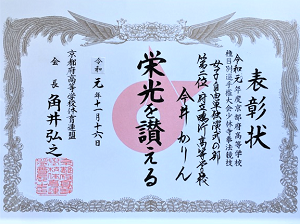 表彰状
令和元年度京都府高等学校
種目別選手権大会少林寺拳法競技
女子自由単独演武の部
第二位 府立鴨沂高等学校
今井 かりん
栄光を讃える
令和元年十一月十六日
京都府高等学校体育連盟
会長 角井弘之